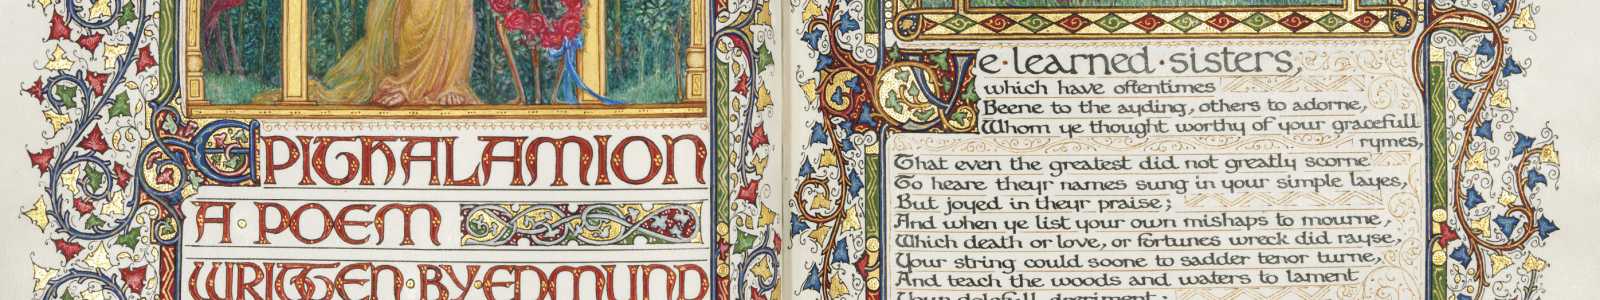 EPITHALAMION
A·POEM
WRITTEN·BY·EDMUND
Ye·learned·sisters,
which have oftentimes
Beene to the ayding, others to adorne,
Whom ye thought worthy of your gracefull
rymes,
That even the greatest did not greatly scorne
To heare theyr names sung in your simple layes,
But joyed in theyr praise;
And when ye list your own mishaps to mourne,
Which death or love, or fortunes wreck did rayse,
Your string could soone to sadder tenor turne,
And teach the woods and waters to lament
Your dolefull dreriment: